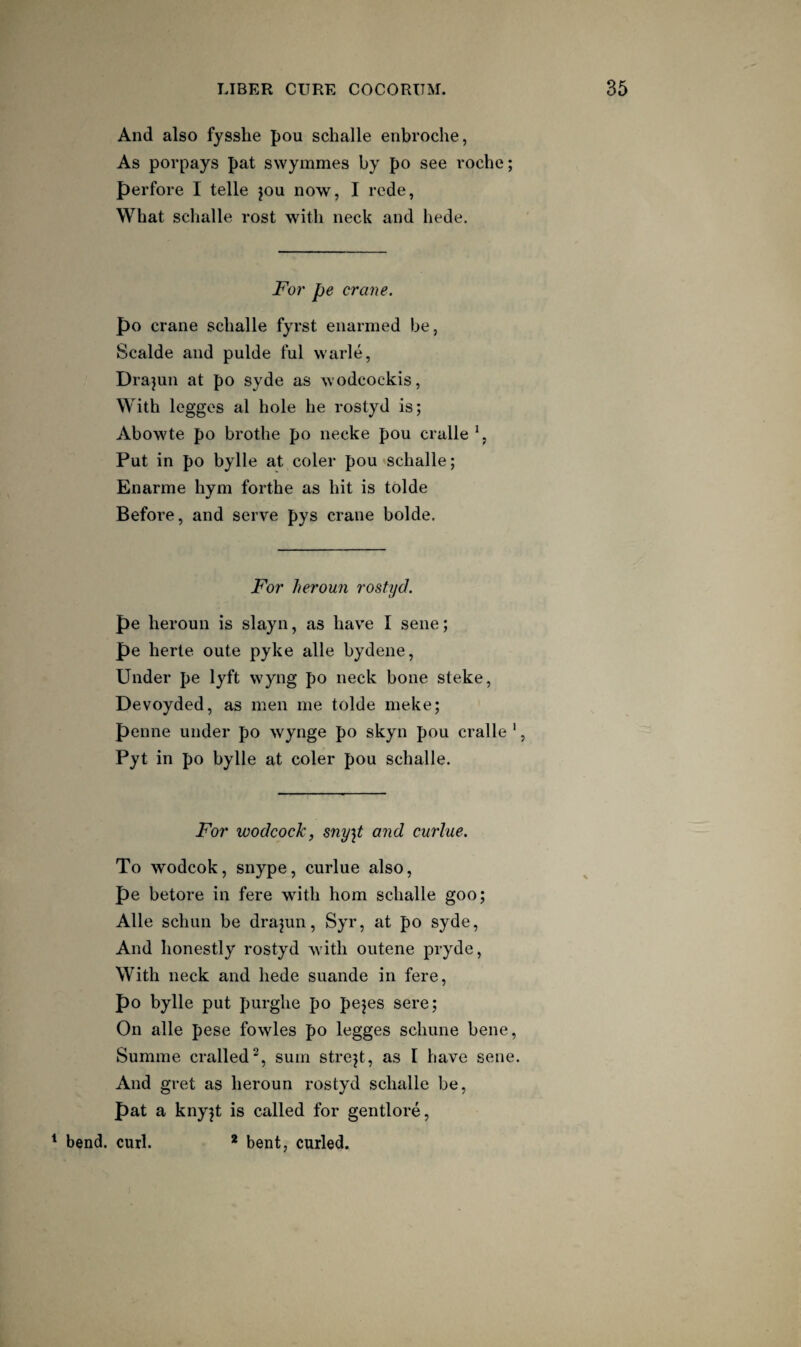 LIBER CURE COCORUM. 35
And also fysshe þou schalle enbroche,
As porpays þat swymmes by þo see roche;
Þerfore I telle ȝou now, I rede,
What schalle rost with neck and hede.
For þe crane.
Þo crane schalle fyrst enarmed be,
Scalde and pulde ful warlé,
Draȝun at þo syde as wodcockis,
With legges al hole he rostyd is;
Abowte þo brothe þo necke þou cralle ¹,
Put in þo bylle at coler þou schalle;
Enarme hym forthe as hit is tolde
Before, and serve þys crane bolde.
For heroun rostyd.
Þe heroun is slayn, as have I sene;
Þe herte oute pyke alle bydene,
Under þe lyft wyng þo neck bone steke,
Devoyded, as men me tolde meke;
Þenne under þo wynge þo skyn þou cralle ¹,
Pyt in þo bylle at coler þou schalle.
For wodcock, snyȝt and curlue.
To wodcok, snype, curlue also,
Þe betore in fere with hom schalle goo;
Alle schun be draȝun, Syr, at þo syde,
And honestly rostyd with outene pryde,
With neck and hede suande in fere,
Þo bylle put þurghe þo þeȝes sere;
On alle þese fowles þo legges schune bene,
Summe cralled², sum streȝt, as I have sene.
And gret as heroun rostyd schalle be,
Þat a knyȝt is called for gentloré,
¹ bend. curl. ² bent, curled.